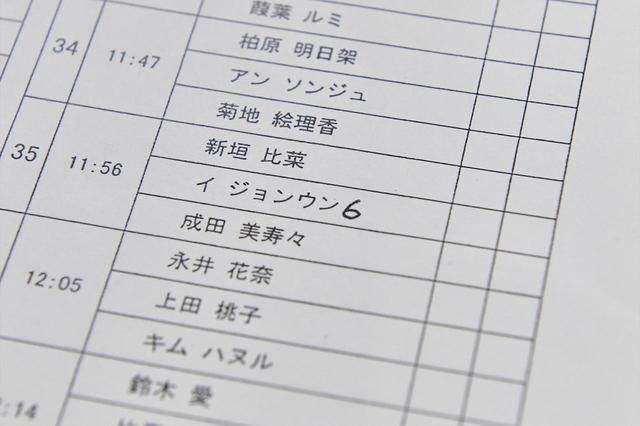 葭葉 ルミ
34 11:47 柏原 明日架
アン ソンジュ
菊地 絵理香
35 11:56 新垣 比菜
イ ジョンウン6
成田 美寿々
12:05 永井 花奈
上田 桃子
キム ハヌル
鈴木 愛
:14